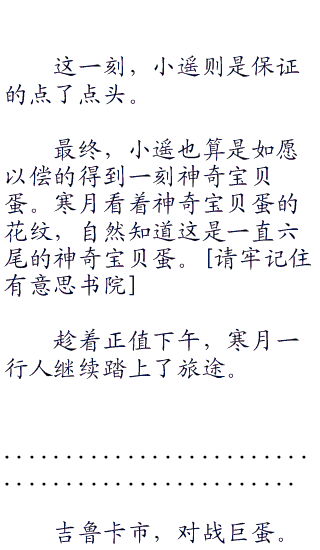 这一刻，小遥则是保证
的点了点头。
最终，小遥也算是如愿
以偿的得到一刻神奇宝贝
蛋。寒月看着神奇宝贝蛋的
花纹，自然知道这是一直六
尾的神奇宝贝蛋。[请牢记住
有意思书院]
趁着正值下午，寒月一
行人继续踏上了旅途。
.........................
........................
吉鲁卡市，对战巨蛋。